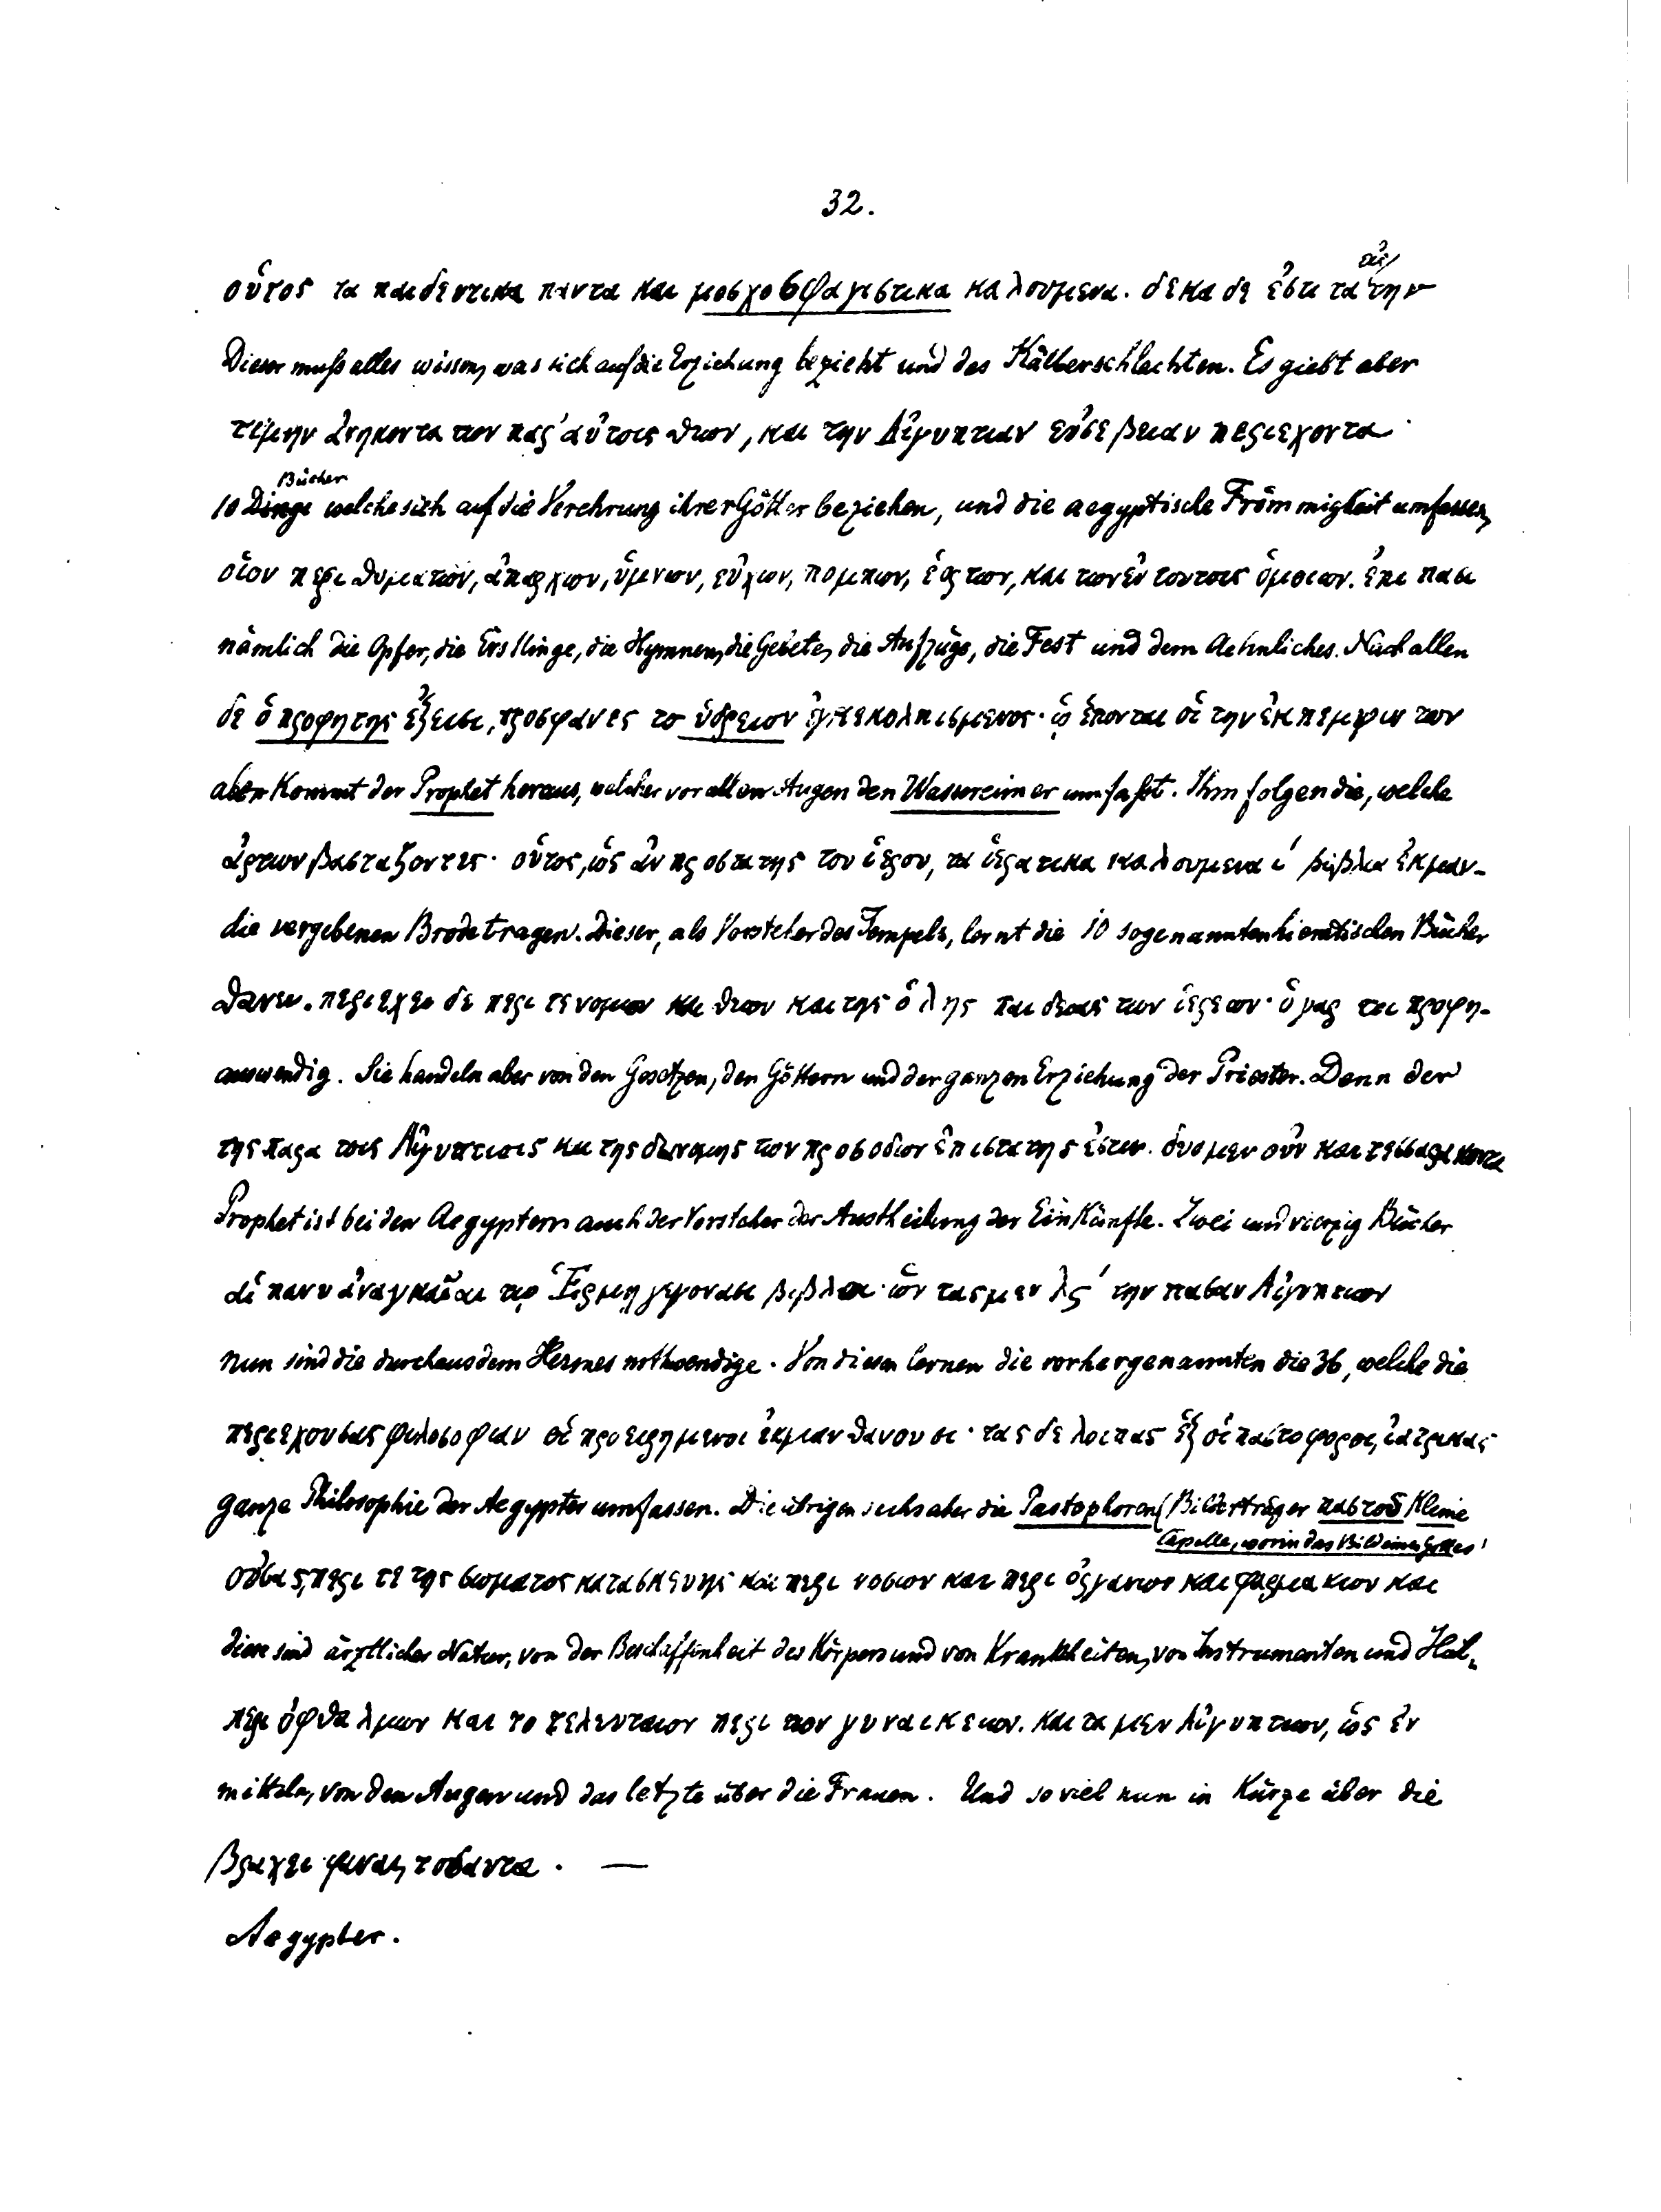 32.
εἰς
οὗτος τα παιδευτικα παντα και μοσχοσφαγιστικα καλουμενα. δεκα δε ἐστι τα την
Dieser muſs alles wissen, was sich auf die Erziehung bezieht und das Kälberschlachten. Es giebt aber
τιμην ἀνηκοντα των παρ' αὐτοις θεων, και την Αἰγυπτιαν εὐσεβειαν περιεχοντα
Bücher
10 Dinge welche sich auf die Verehrung ihrer Götter beziehen, und die aegyptische Frömmigkeit umfassen,
οἷον περι θυματων, ἀπαρχων, ὑμνων, εὐχων, πομπων, ἑορτων, και των ἐν τουτοις ὁμοιων. ἐπι πασι
nämlich die Opfer, die Erstlinge, die Hymnen, die Gebete, die Aufzüge, die Fest und dem Aehnliches. Nach allen
δε ὁ προφητης ἐξεισι, προσφανες το ὑδρειον ἐγκεκολπισμενος· ᾧ ἑπονται οἱ την ἐκπεμψιν των
aber kommt der Prophet heraus, welcher vor allen Augen den Wassereimer umfaſst. Ihm folgen die, welche
ἀρτων βασταζοντες· οὗτος, ὡς ἀν προστατης του ἱερου, τα ἱερατικα καλουμενα ι' βιβλια ἐκμαν-
die vergebenen Brode tragen. Dieser, als Vorsteher des Tempels, lernt die 10 sogenannten hieratischen Bücher
θανει. περιεχει δε περι τε νομων και θεων και της ὁλης παιδειας των ἱερεων· ὁ γαρ τοι προφη-
auswendig. Sie handeln aber von den Gesetzen, den Göttern und der ganzen Erziehung der Priester. Denn der
της παρα τοις Αἰγυπτιοις και της διανομης των προσοδων ἐπιστατης ἐστιν. δυο μεν οὐν και τεσσαρακοντα
Prophet ist bei den Aegyptern auch der Vorsteher der Austheilung der Einkünfte. Zwei und vierzig Bücher
αἱ πανυ ἀναγκαῖαι τῳ Ἑρμῃ γεγονασι βιβλοι· ὡν τας μεν λς' την πασαν Αἰγυπτιων
nun sind die durchaus dem Hermes nothwendige. Von diesen lernen die vorhergenannten die 36, welche die
περιεχουσας φιλοσοφιαν οἱ προειρημενοι ἐκμανθανουσι· τας δε λοιπας ἑξ οἱ παστοφοροι, ἰατρικας
ganze Philosophie der Aegypter umfassen. Die übrigen sechs aber die Pastophoren (Bilderträger παστοῦ Kleine
Capelle, worin das Bild eines Gottes)
οὐσας, περι τε της σωματος κατασκευης και περι νοσων και περι ὀργανων και φαρμακων και
diese sind ärztlicher Natur, von der Beschaffenheit des Körpers und von Krankheiten, von Instrumenten und Heil-
περι ὀφθαλμων και το τελευταιον περι των γυναικειων. και τα μεν Αἰγυπτιων, ὡς ἐν
mitteln, von den Augen und das letzte über die Frauen. Und so viel nun in Kürze über die
βραχει φαναι, τοσαυτα. —
Aegypter.